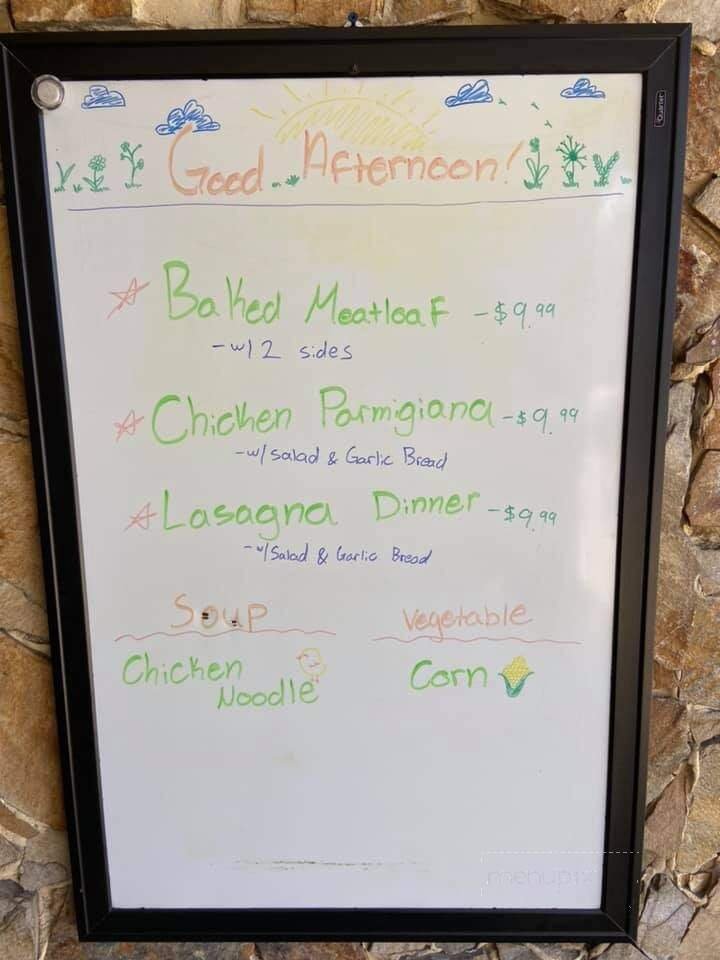 Good Afternoon!
Baked Meatloaf - $9.99
- w/ 2 sides
Chicken Parmigiana - $9.99
- w/ salad & Garlic Bread
Lasagna Dinner - $9.99
- w/ Salad & Garlic Bread
Soup
Chicken
Noodle
Vegetable
Corn
Quartet
menupix